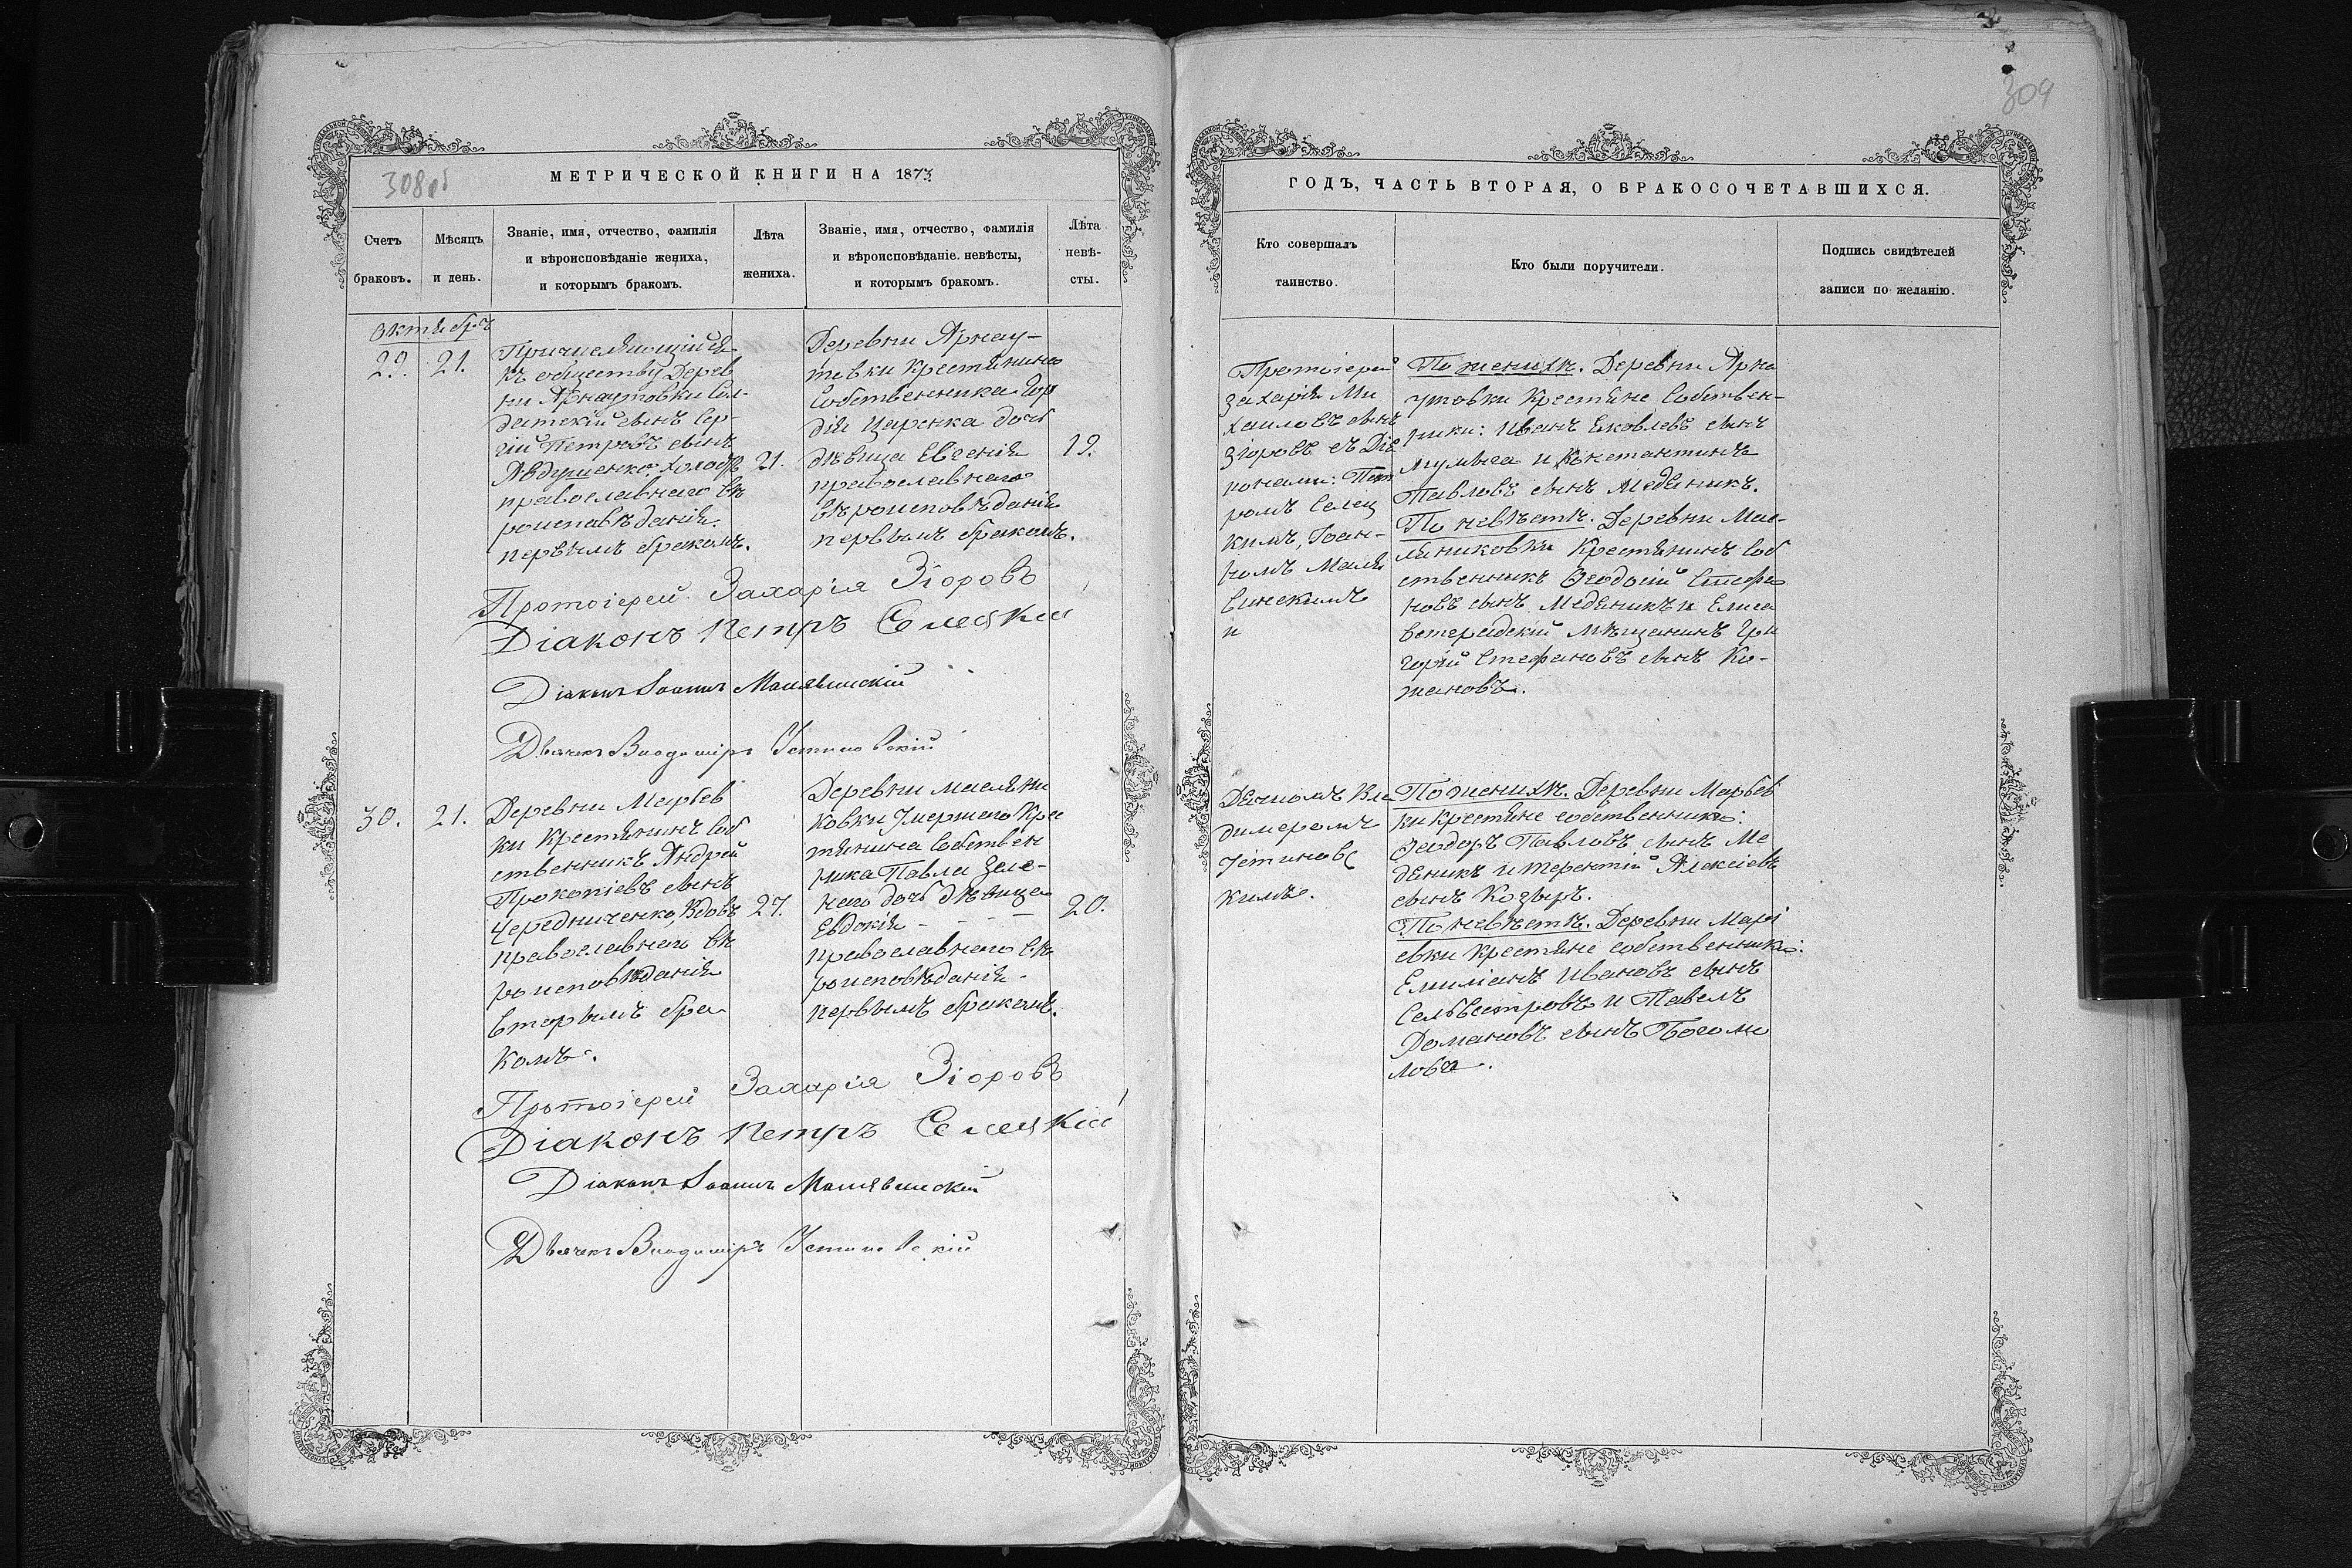 308об
МЕТРИЧЕСКОЙ КНИГИ НА 1873
Счетъ браковъ.
Мѣсяцъ и день.
Званіе, имя, отчество, фамилія
и вѣроисповѣданіе жениха,
и которымъ бракомъ.
Лѣта жениха.
Званіе, имя, отчество, фамилія
и вѣроисповѣданіе невѣсты,
и которымъ бракомъ.
Лѣта невѣ-
сты.
Октябрь
29. 21.
Причисляющійся
къ обществу Дерев
ни Арнаутовки Сол-
датскій сынъ Сер-
гій Петровъ сынъ
Авдушенко, холос
православнаго вѣ
роисповѣданія.
первымъ бракомъ.
21.
Деревни Арнау-
товки Крестянина
Собственника Гор
дія Царенка дочь
дѣвица Евгенія
православнаго
вѣроисповѣданія
первымъ бракомъ.
19.
Протоіерей Захарія Зіоровъ
Діаконъ Петръ Селецкій
Діаконъ Іоаннъ Малявинскій
Дьячекъ Владиміръ Устиновскій
30. 21.
Деревни Марьев
ки Крестянинъ Соб
ственникъ Андрей
Прокопіевъ сынъ
Чередниченко, Вдовъ
православнаго вѣ
роисповѣданія
вторымъ бра
комъ.
27.
Деревни Масляни
ковки Умершаго Крес
тянина Собствен
ника Павла Зеле-
наго дочь дѣвица
Евдокія - - - -
православнаго вѣ
роисповѣданія -
первымъ бракомъ.
20.
Протоіерей Захарія Зіоровъ
Діаконъ Петръ Селецкій
Діаконъ Іоаннъ Малявинскій
Дьячекъ Владиміръ Устиновскій
309
ГОДЪ, ЧАСТЬ ВТОРАЯ, О БРАКОСОЧЕТАВШИХСЯ.
Кто совершалъ
таинство.
Кто были поручители.
Подпись свидѣтелей
записи по желанію.
Протоіерей
Захарія Ми
хаиловъ сынъ
Зіоровъ съ Діа
конами: Пет
ромъ Селец
кимъ, Іоан-
номъ Маля
винскимъ
и
По женихѣ. Деревни Арна
утовки Крестяне Собствен-
ники: Иванъ Яковлевъ сынъ
и Константинъ
Павловъ сынъ Медяникъ.
По невѣстѣ. Деревни Мас-
ляниковки Крестянинъ Соб
ственникъ Ѳеодосій Стефа
новъ сынъ Медяникъ и Елиса
ветградскій мѣщанинъ Гри
горій Стефановъ сынъ Ко-
жановъ.
Дьячкомъ Вла
димеромъ
Устиновс
кимъ.
По женихѣ. Деревни Марьев
ки крестяне собственники:
Ѳеодоръ Павловъ сынъ Ме
дяникъ и Терентій Алексіевъ
сынъ Козырь.
По невѣстѣ. Деревни Марі
евки крестяне собственники:
Емиліанъ Ивановъ сынъ
Сельвестровъ и Павелъ
Романовъ сынъ Богомо
ловъ.